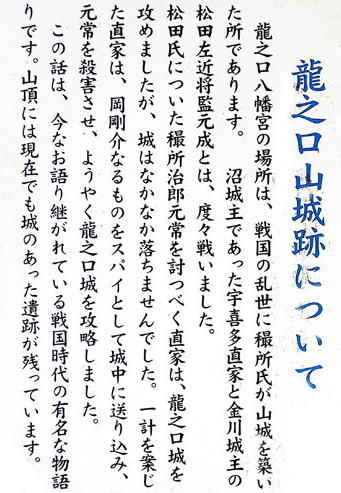 龍之口山城跡について
龍之口八幡宮の場所は、戦国の乱世に穝所氏が山城を築い
た所であります。　沼城主であった宇喜多直家と金川城主の
松田左近将監元成とは、度々戦いました。
松田氏についた穝所治郎元常を討つべく直家は、龍之口城を
攻めましたが、城はなかなか落ちませんでした。一計を案じ
た直家は、岡剛介なるものをスパイとして城中に送り込み、
元常を殺害させ、ようやく龍之口城を攻略しました。
この話は、今なお語り継がれている戦国時代の有名な物語
りです。山頂には現在でも城のあった遺跡が残っています。